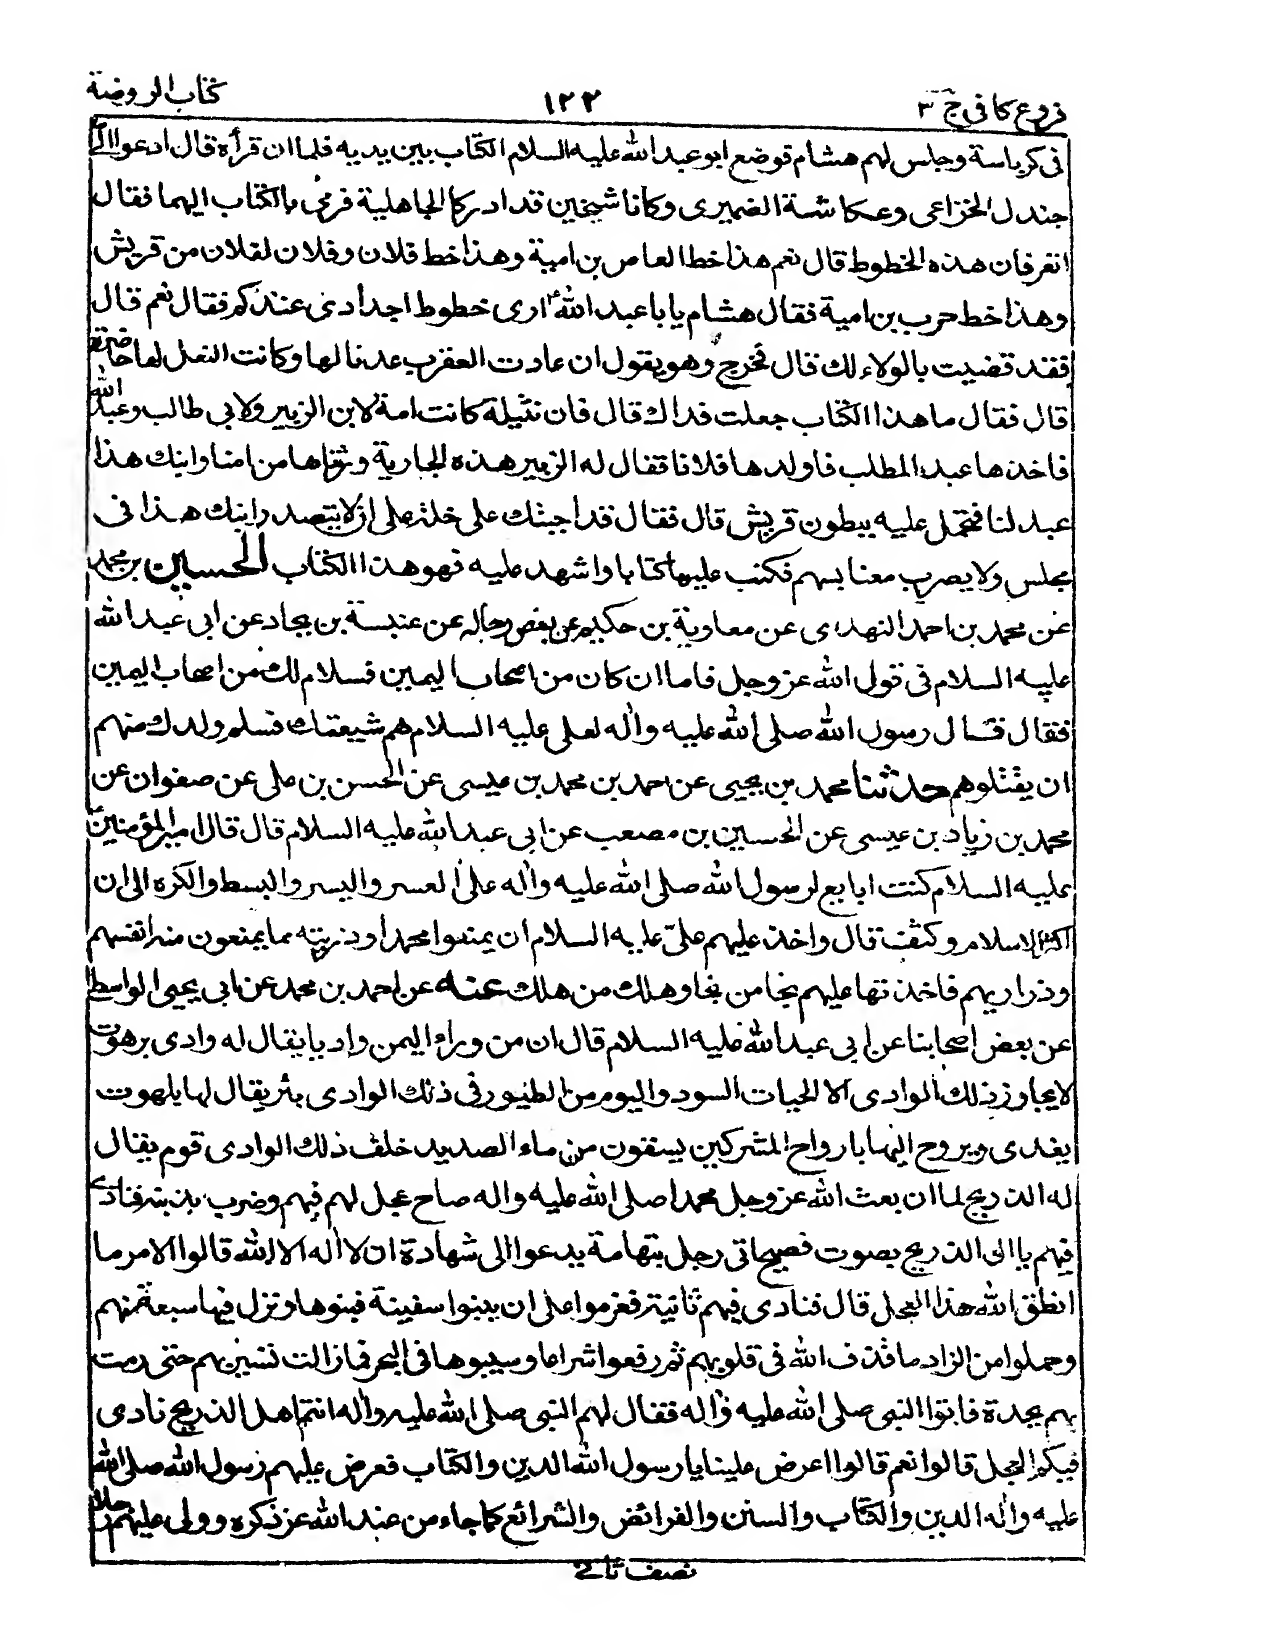 فروع كافى ج ٣
١٢٢
كتاب الروضة
فى كرباسة وجلس لهم هشام فوضع ابو عبد الله عليه السلام الكتاب بين يديه فلما ان قرأه قال ادعوا الى
جندل الخزاعى وعكاشة الضميرى وكانا شيخين قد ادركا الجاهلية فرمى بالكتاب اليهما فقال
اتعرفان هذه الخطوط قال نعم هذا خط العاص بن امية وهذا خط فلان وفلان لفلان من قريش
وهذا خط حرب بن امية فقال هشام يا با عبد الله ارى خطوط اجدادى عندكم فقال نعم قال
فقد قضيت بالولاء لك قال فخرج وهو يقول ان عادت العقرب عدنا لها وكانت النعل لها حاضرة
قال فقال ما هذا الكتاب جعلت فداك قال فان نثيلة كانت امة لابن الزبير ولابى طالب وعبد الله
فاخذها عبد المطلب فاولدها فلانا فقال له الزبير هذه الجارية ورثناها من امنا وابنك هذا
عبد لنا فتحمل عليه ببطون قريش قال فقال قد اجبتك على خلة على ان لا يتصدر ابنك هذا فى
مجلس ولا يضرب معنا بسهم فكتب عليه كتابا واشهد عليه فهو هذا الكتاب الحسين بن محمد
عن محمد بن احمد النهدى عن معاوية بن حكيم عن بعض رجاله عن عنبسة بن بجاد عن ابى عبد الله
عليه السلام فى قول الله عز وجل فاما ان كان من اصحاب اليمين فسلام لك من اصحاب اليمين
فقال قال رسول الله صلى الله عليه وآله لعلى عليه السلام هم شيعتك فسلم ولدك منهم
ان يقتلوهم حدثنا محمد بن يحيى عن احمد بن محمد بن عيسى عن الحسن بن على عن صفوان عن
محمد بن زياد بن عيسى عن الحسين بن مصعب عن ابى عبد الله عليه السلام قال قال امير المؤمنين
عليه السلام كنت ابايع لرسول الله صلى الله عليه وآله على العسر واليسر والبسط والكره الى ان
اكثر الاسلام وكثف قال واخذ عليهم على عليه السلام ان يمنعوا محمدا وذريته مما يمنعون منه انفسهم
وذراريهم فاخذتها عليهم نجا من نجا وهلك من هلك عنه عن احمد بن محمد عن ابى يحيى الواسطى
عن بعض اصحابنا عن ابى عبد الله عليه السلام قال ان من وراء اليمن واديا يقال له وادى برهوت
لا يجاوز ذلك الوادى الا الحيات السود والبوم من الطيور فى ذلك الوادى بئر يقال لها بلهوت
يغدى ويروح اليها بارواح المشركين يسقون من ماء الصديد خلف ذلك الوادى قوم يقال
له الذريح لما ان بعث الله عز وجل محمدا صلى الله عليه واله صاح عجل لهم فيهم وضرب بذنبه فنادى
فيهم يا ال الذريح بصوت فصيح اتى رجل بتهامة يدعوا الى شهادة ان لا اله الا الله قالوا الامر ما
انطق الله هذا العجل قال فنادى فيهم ثانية فعزموا على ان يبنوا سفينة فبنوها ونزل فيها سبعة منهم
وحملوا من الزاد ما قذف الله فى قلوبهم ثم رفعوا شراعا وسيبوها فى البحر فما زالت تسير بهم حتى رمت
بهم بجدة فاتوا النبى صلى الله عليه وآله فقال لهم النبى صلى الله عليه وآله انتم اهل الذريح نادى
فيكم العجل قالوا نعم قالوا اعرض علينا يا رسول الله الدين والكتاب فعرض عليهم رسول الله صلى الله
عليه وآله الدين والكتاب والسنن والفرائض والشرائع كما جاء من عند الله عز ذكره وولى عليهم رجلا
نصف ثانى